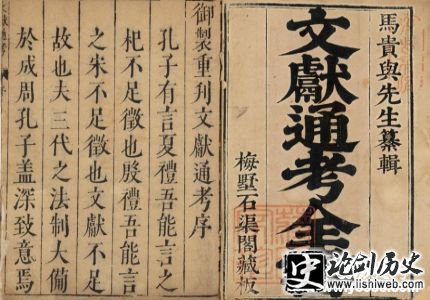 馬貴與先生纂輯
文獻通考全書
梅墅石渠閣藏板
御製重刊文獻通考序
孔子有言夏禮吾能言之
杞不足徵也殷禮吾能言
之宋不足徵也文獻不足
故也夫三代之法制大備
於成周孔子盖深致意焉
论剑历史
www.lishiweb.com